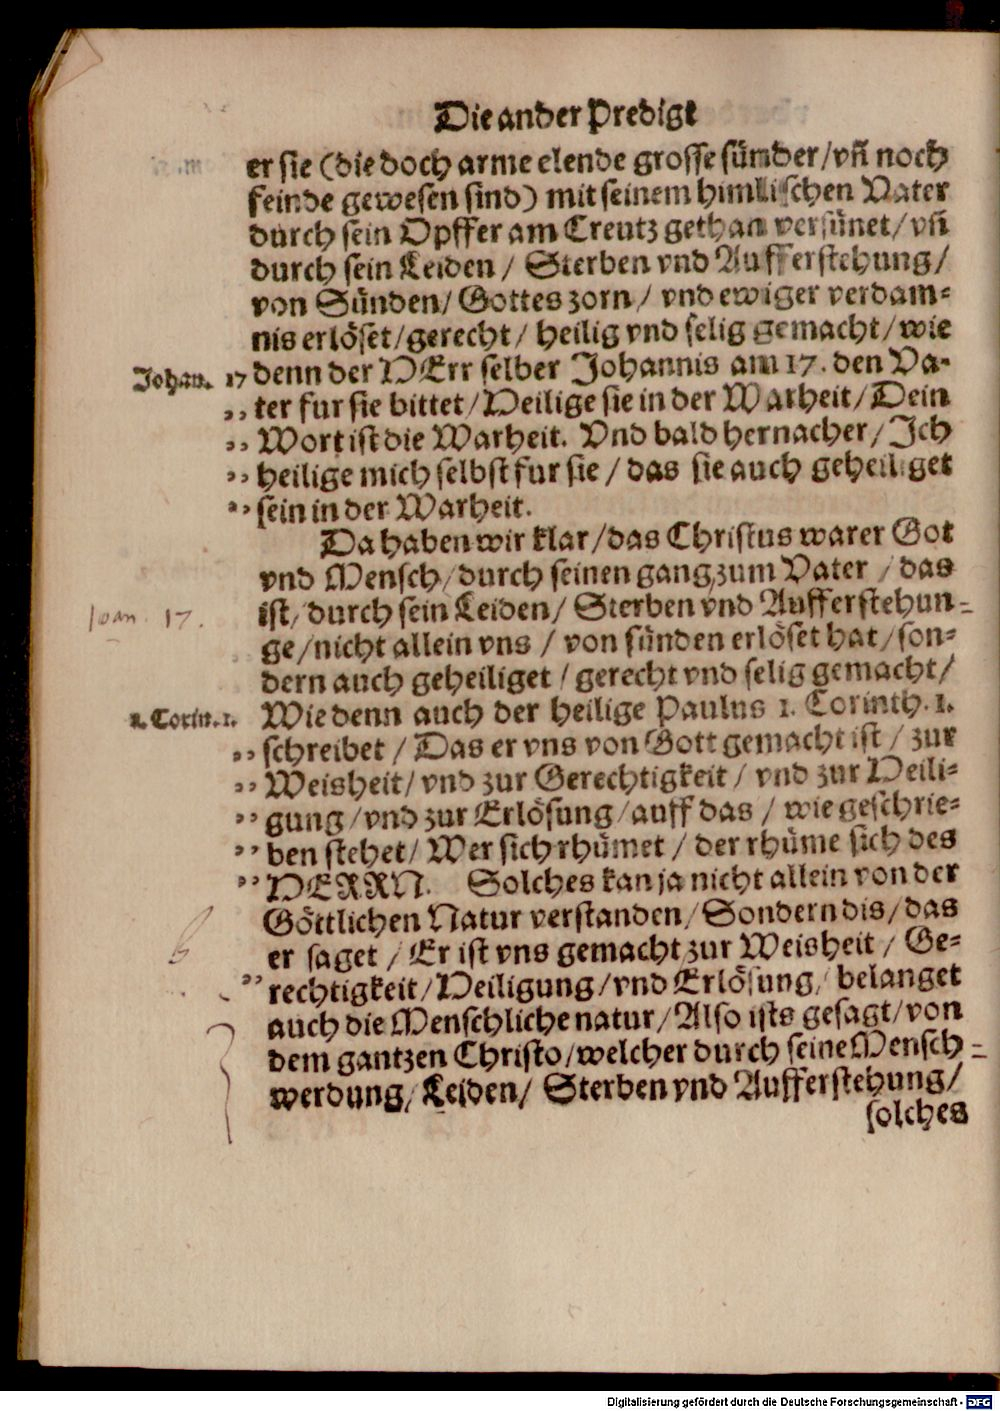 Die ander Predigt
er sie (die doch arme elende grosse sünder/vn̄ noch
feinde gewesen sind) mit seinem himlischen Vater
durch sein Opffer am Creutz gethan versünet/vn̄
durch sein Leiden/ Sterben vnd Aufferstehung/
von Sünden/ Gottes zorn/ vnd ewiger verdam-
nis erlöset/gerecht/ heilig vnd selig gemacht/wie
Johan. 17 denn der HErr selber Johannis am 17. den Va-
,, ter fur sie bittet/Heilige sie in der Warheit/Dein
,, Wort ist die Warheit. Vnd bald hernacher/Ich
,, heilige mich selbst fur sie/ das sie auch geheiliget
,, sein in der Warheit.
Da haben wir klar/das Christus warer Got
vnd Mensch/durch seinen gang zum Vater/das
Ioan. 17. ist/durch sein Leiden/ Sterben vnd Aufferstehun-
ge/nicht allein vns/ von sünden erlöset hat/son-
dern auch geheiliget/gerecht vnd selig gemacht/
1. Corin. 1. Wie denn auch der heilige Paulus 1. Corinth. 1.
,, schreibet/ Das er vns von Gott gemacht ist/ zur
,, Weisheit/vnd zur Gerechtigkeit/vnd zur Heili-
,, gung/vnd zur Erlösung/auff das/ wie geschrie-
,, ben stehet/Wer sich rhümet/ der rhüme sich des
,, HERRN. Solches kan ja nicht allein von der
Göttlichen Natur verstanden/Sondern dis/das
er saget/ Er ist vns gemacht zur Weisheit/ Ge-
,, rechtigkeit/Heiligung/vnd Erlösung/belanget
auch die Menschliche natur/Also ists gesagt/von
dem gantzen Christo/welcher durch seine Mensch-
werdung/Leiden/ Sterben vnd Aufferstehung/
solches
Digitalisierung gefördert durch die Deutsche Forschungsgemeinschaft - DFG